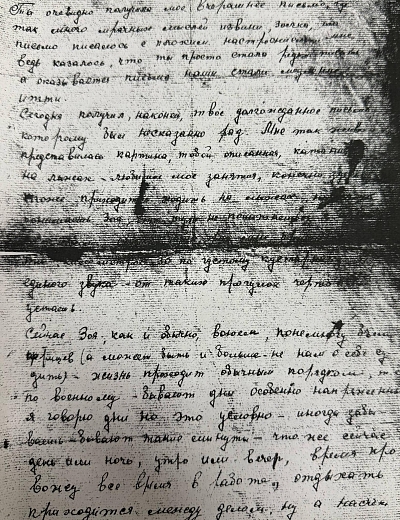 Ты очевидно получила мое вчерашнее письмо, где
так много мрачных мыслей извини Зоечка, но
письмо писалось с плохим настроением, мне
ведь казалось, что ты просто стала реже писать
а оказывается письма наши стали медленнее
итти.
Сегодня получил, наконец, твое долгожданное письмо
которому был несказанно рад. Мне так живо
представилась картина, тобой описанная, катания
на лыжах - любимое мое занятия, конечно
тоже приходится ходить на лыжах, но
понимаешь Зоя
по густому
единого звука - от таких прогулок чертовски
устаешь.
Сейчас Зоя, как и обычно, воюем, понемногу бьем
фрицев (а может быть и больше - не нам о себе су
дить) - жизнь проходит обычным порядком, т.е.
по военному - бывают дни особенно напряженные
я говорю дни но это условно - иногда забы
ваешь - бывают такие минуты - что же сейчас
день или ночь, утро или вечер, время про
вожу все время в работе, отдыхать
приходится между делом, ну а насчет